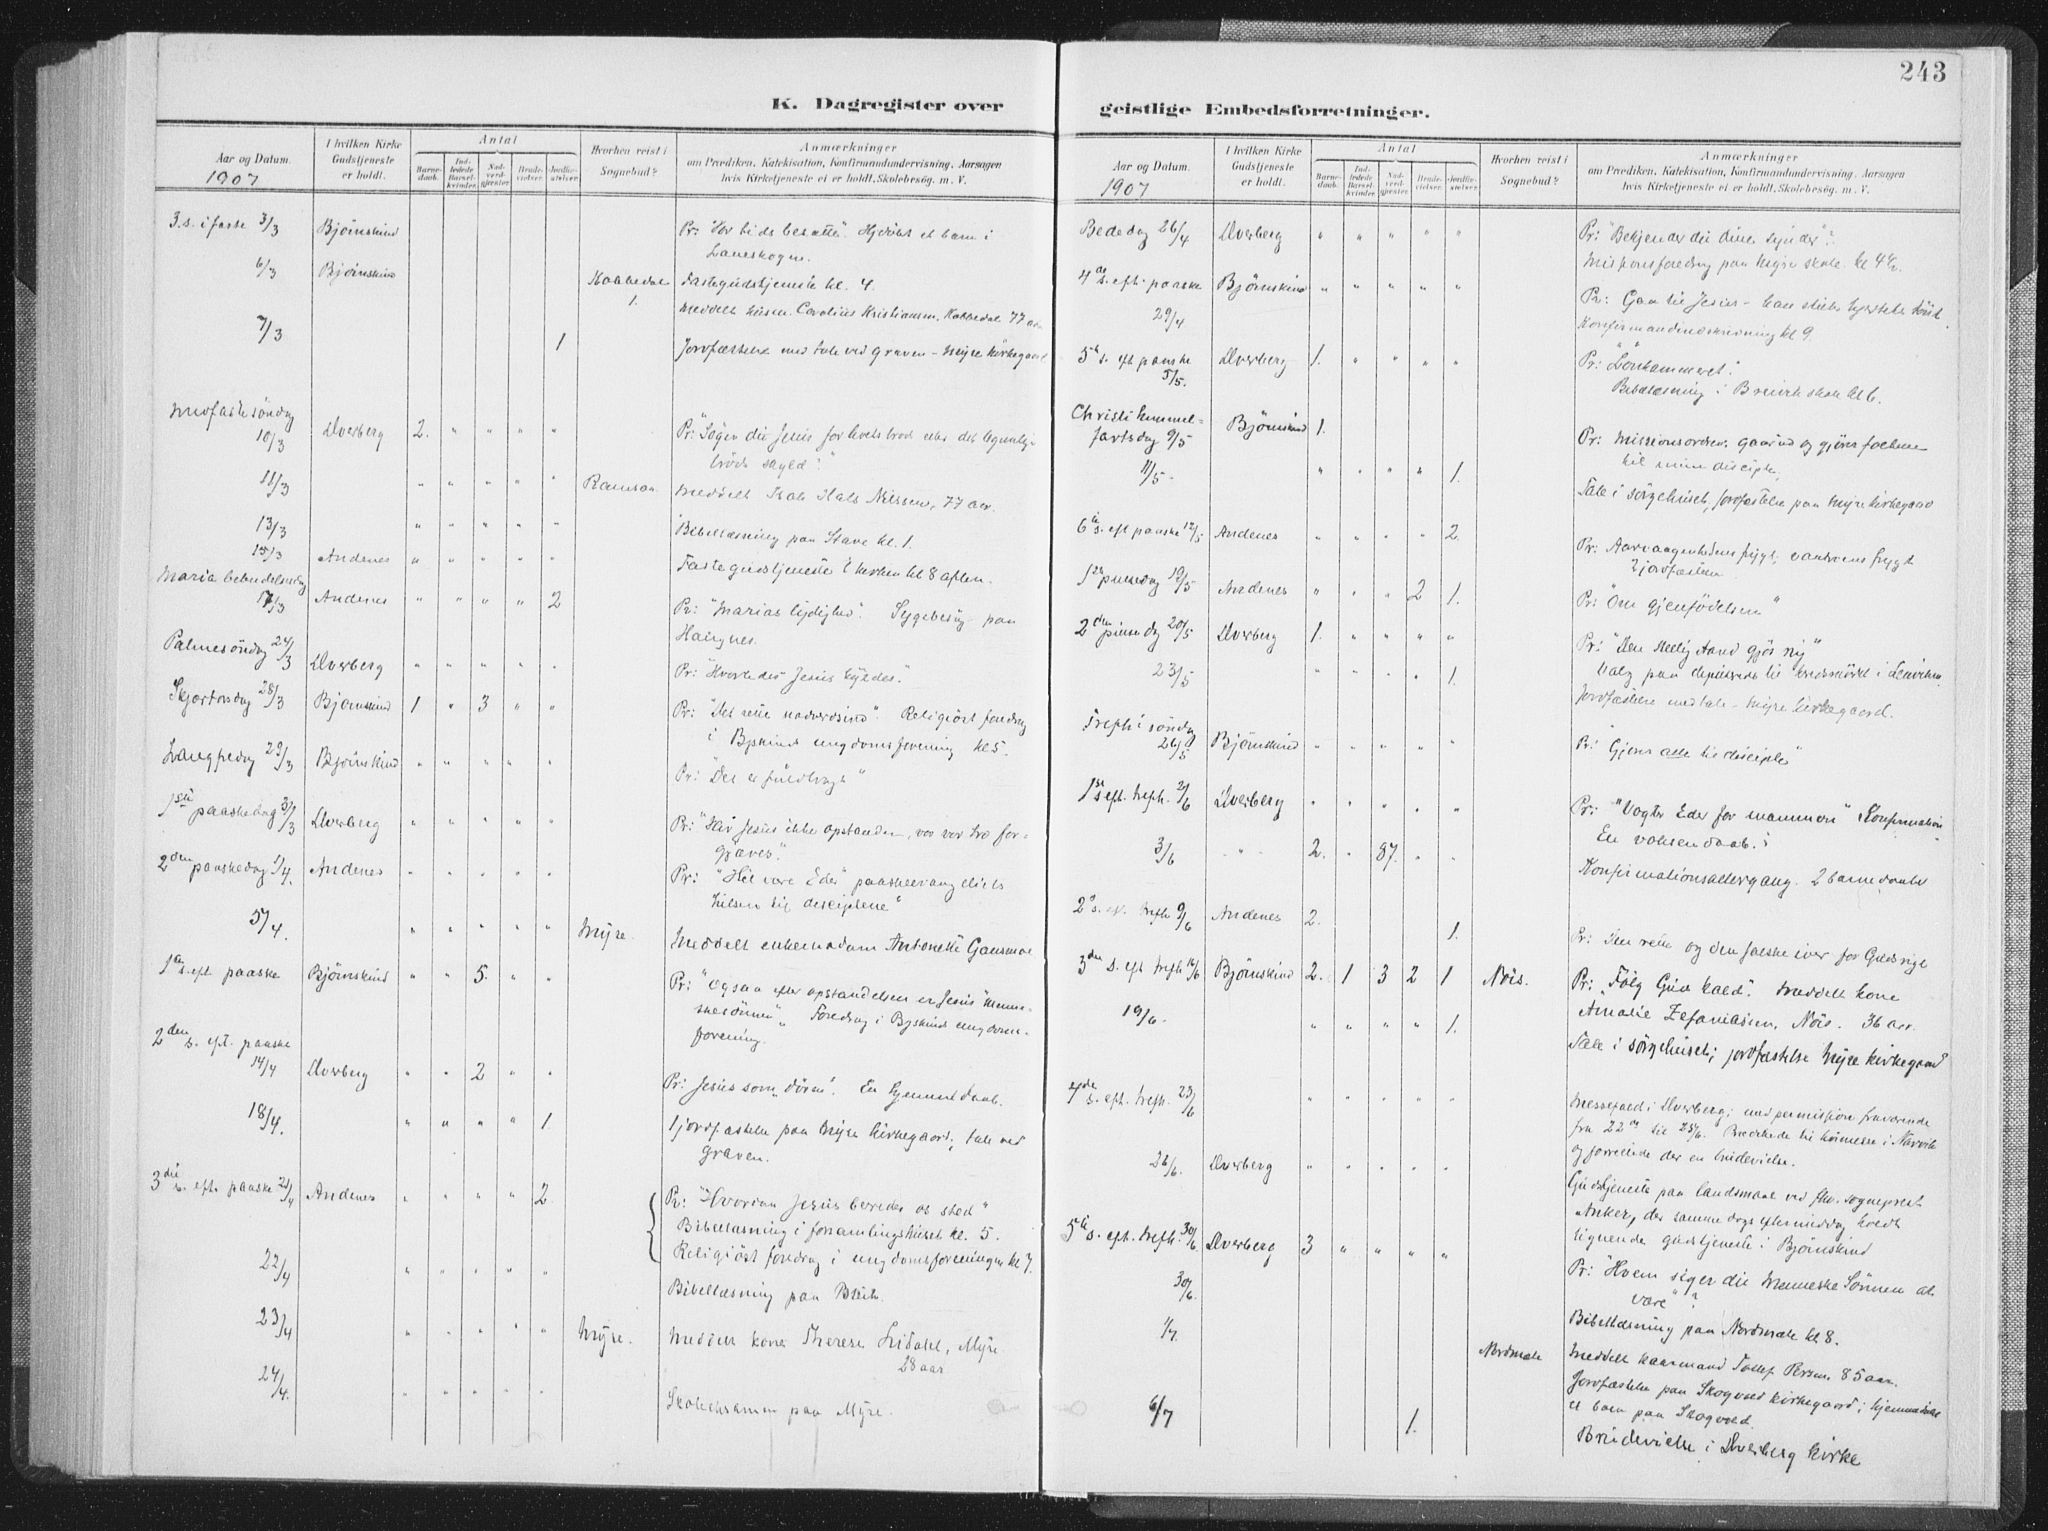 243
K. Dagregister over
Aar og Datum.
1907
I hvilken Kirke
Gudstjeneste
er holdt.
Antal
Barne-
daab.
Ind-
ledede
Barsel-
kvinder.
Nad-
verd-
gjester.
Brude-
vielser.
Jordfæ-
stelser.
Hvorhen reist i
Sognebud?
Anmærkninger
om Prædiken, Katekisation, Konfirmandundervisning, Aarsagen
hvis Kirketjeneste ei er holdt, Skolebesøg. m. V.
3. s. i faste 3/3 Bjørnskind Pr: Hjdøbt et barn i
6/3 Bjørnskind Kobbedal 1. Fastegudstjeneste kl. 4.
meddelt Carolius Kristiansen, Kobbedal 77 aar
7/3 1 Jordfæstelse med tale ved graven - Myre kirkegaard
Midfaste söndag
10/3 Dverberg 2. " " " " Pr: "Söger du Jesus for livets brød eller det legemlige
brøds skyld?"
11/3 " " " " " Ramsaa meddelt Isak Hals Nilssen, 77 aar.
13/3 " " " " " Bibellæsning paa Stave kl. 1.
15/3 Andenes " " " " " Fastegudstjeneste i kirken kl 8 aften.
Maria bebudelsesdag
17/3 Andenes " " " " 2 Pr: "Marias lydighed". Sygebesög paa
Haugnes.
Palmesöndag 24/3 Dverberg " " " " " Pr: "Hvorledes Jesus hyldes".
Skjærtorsdag 28/3 Bjørnskind 1 " 3 " " Pr: "Det rette nadverdsind". Religiöst foredrag
i Bjskinds ungdomsforening kl 5.
Langfredag 29/3 Bjørnskind " " " " " Pr: "Det er fuldbragt"
1ste paaskedag 31/3 Dverberg " " " " " Pr: "Hvis Jesus ikke opstanden, var vor tro for-
gjæves".
2den paaskedag 1/4. Andenes " " " " " Pr: "Hil være Eder" paaskeevangeliets
hilsen til disciplene"
5/4. " " " " " Myre. Meddelt enkemadam Antonette Gansmoe
1ste s. eft paaske Bjørnskind " " 5. " " Pr: "Ogsaa efter opstandelsen er Jesus "menne-
skesönnen" Foredrag i Bjskind ungdoms-
forening.
2den s. eft. paaske
14/4 Dverberg " " 2 " " Pr: Jesus som "dören". En hjemmedaab.
18/4. " " " " 1. 1 jordfæstelse paa Myre kirkegaard; tale ved
graven.
3die s. eft. paaske 21/4 Andenes " " " " 2. Pr: "Hvordan Jesus bereder os sted"
Bibellæsning i forsamlingshuset kl. 5.
Religiöst foredrag i ungdomsforeningen kl 7.
22/4 " " " " " Bibellæsning paa Bleik.
23/4 " " " " " Myre. Meddelt kone Therese Lidahl, Myre
28 aar
24/4. " " " " " Skoleeksamen paa Myre.
geistlige Embedsforretninger.
Aar og Datum.
1907
I hvilken Kirke
Gudstjeneste
er holdt.
Antal
Barne-
daab.
Ind-
ledede
Barsel-
kvinder.
Nad-
verd-
gjester.
Brude-
vielser.
Jordfæ-
stelser.
Hvorhen reist i
Sognebud?
Anmærkninger
om Prædiken, Katekisation, Konfirmandundervisning, Aarsagen
hvis Kirketjeneste ei er holdt, Skolebesøg. m. V.
Bededag 26/4 Dverberg " " " " " Pr: "Bekjender du dine synder"?
Missionsforedrag paa Myre skole kl 4½.
4de s. eft. paaske Bjørnskind " " " " " Pr: Gaa til Jesus - han
29/4 Konfirmandindskrivning kl 9.
5te s. eft paaske
5/5. Dverberg 1. " " " " Pr: "Lönkammeret".
Bibellæsning i Breivik skole kl 6.
Christi himmel-
fartsdag 9/5 Bjørnskind 1. Pr: Missionsordren, gaa ud og gjörer folkene
til mine disciple.
11/5. " " " " 1. Tale i sörgehuset, jordfæstelse paa Myre kirkegaard
6te s. eft paaske 12/5 Andenes " " " " 2. Pr: Aarvaagenhedens frygt, vantroens frygt
2 jordfæstelser.
1ste pinsedag 19/5 Andenes " " " 2 1. Pr: "Om gjenfödelsen"
2den pinsedag 20/5 Dverberg 1. " " " " Pr: "Den Hellig Aand gjör ny"
Valg paa deputerede til kredsmödet i
23/5 " " " " 1. Jordfæstelse med tale - Myre kirkegaard.
Trefh.s söndag
26/5 Bjørnskind " " " " " Pr: "Gjörer alle til disciple"
1ste s. eft. trefh. 2/6 Dverberg " " " " " Pr: "Vogter Eder for mammon" Konfirmation
En voksendaab.
3/6 " 2. " 87. " " Konfirmationsaltergang. 2 barnedaab
2den s. ef. trefh 9/6 Andenes 2. 1. Pr: Den rette og den falske iver for Guds rige
3die s. eft trefh 16/6 Bjørnskind 2. 1 3 2 1 Nöis. Pr: "Fölg Guds kald". Meddelt kone
Amalie Zefaniassen, Nöis. 36 aar.
19/6. " " " " 1. Tale i sörgehuset; jordfæstelse Myre kirkegaard
4de s. eft. trefh. 23/6 " " " " " Messefald i Dverberg; med permission fraværende
fra 22de til 25/6. Prædikede til höimesse i Narvik
og forrettede der en brudevielse.
26/6. Dverberg " " " " " Gudstjeneste paa landsmaal ved fhv. sogneprest
Anker, der samme dags eftermiddag holdt
lignende gudstjeneste i Bjørnskind
5te s. eft. trefh. 30/6. Dverberg 3 " " " " Pr: "Hvem siger du Menneske Sönnen at
være"?
30/6. Bibellæsning paa Nordmæle kl 8.
1/7. Nordmæle Meddelt kaarmand Tollef Persen, 85 aar.
Jordfæstelse paa Skogvold kirkegaard; hjemmedöbt
et barn paa Skogvold.
6/7 1. Brudevielse i Dverberg kirke